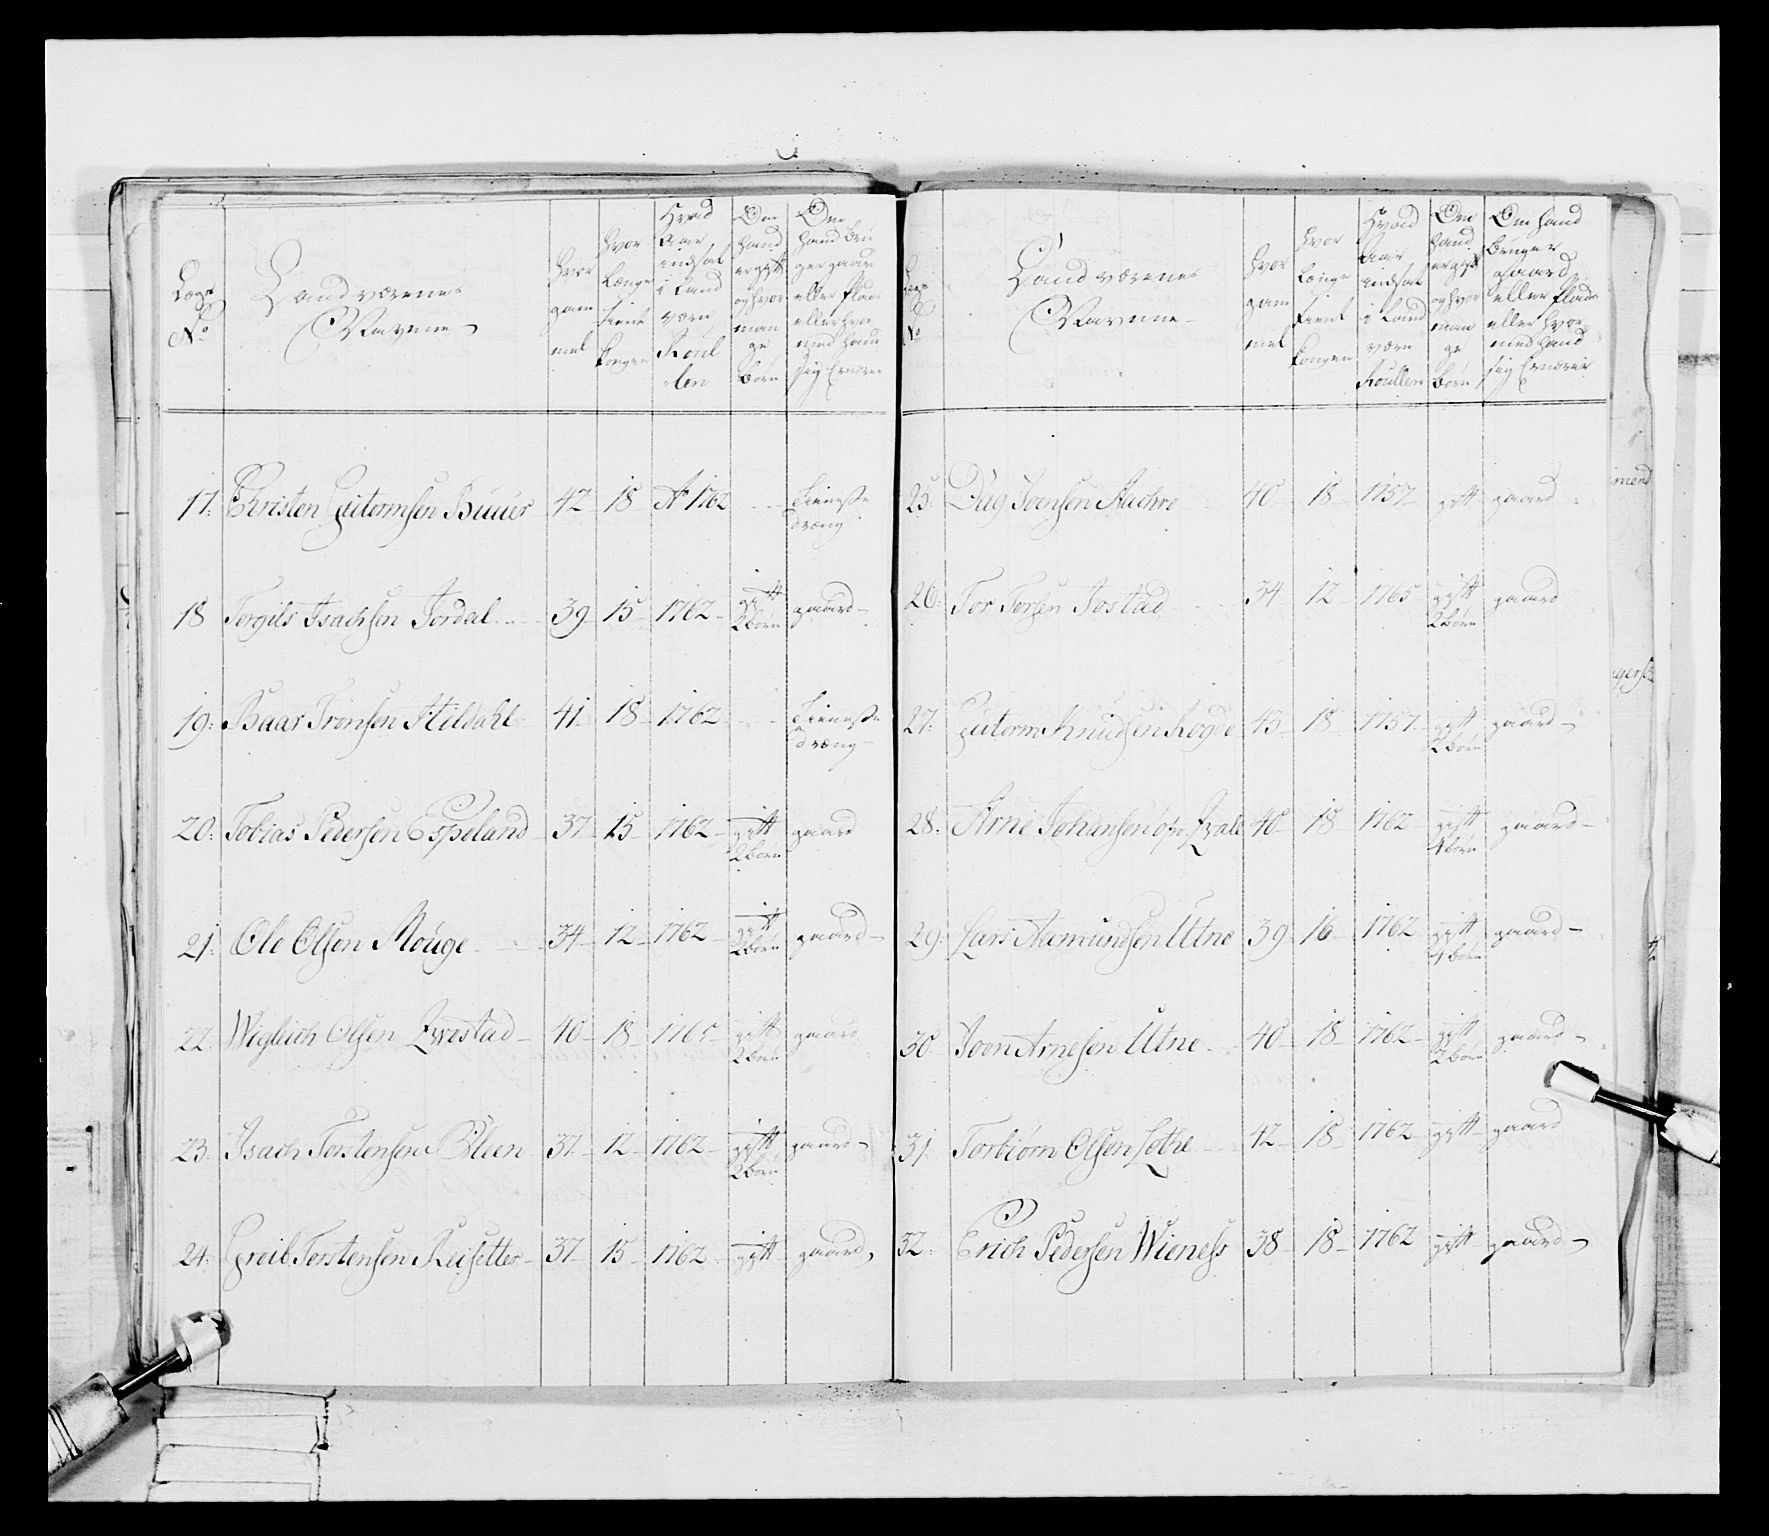 Lægs No
Landværenes Navne
Hvor gam mel
Hvor Længe tient Kongen
Hvad Aar indsat i Land værn Roul len
Om Hand er gift og hvor man ge Børn
Om Hand bru ger gaard eller Plads eller hvor med Hand sig Ernærer
17: Christen Guttormsen Buuer 42 18 Ao 1762 - - Tieneste dræng
18 Torgils Isachsen Jordal 39 15 1762 gift 2 børn gaard
19: Baar Tronsen Hildahl 41 18 1762 - - Tieneste dræng
20: Tobias Pedersen Espeland 37 15 1762 gift 2 børn gaard
21: Ole Olsen Mouge 34 12 1762 gift 2 børn gaard
22. Wiglich Olsen Qvestad 40 18 1765 gift 2 børn gaard
23. Isach Torstensen Bleen 37 12 1762 gift 2 børn gaard
24: Greib Torstensen Reisetter 37 15 1762 gift gaard
Lægs No
Landværenes Navne
Hvor gam mel
Hvor Længe tient Kongen
Hvad Aar indsat i Land værn Roullen
Om Hand er gift og hvor man ge Børn
Om Hand bruger gaard eller Plads eller hvor med Hand sig Ernærer
25: Dag Joensen Aachre 40 18 1757 gift gaard
26: Tor Torsen Jostad 34 12 1765 gift 2 børn gaard
27: Guttorm Knudsen Rogde 43 18 1757 gift 2 børn gaard
28: Arne Johansen Qvale 40 18 1762 gift 4 børn gaard
29: Lars Aamundsen Utne 39 16 1762 gift 4 børn gaard
30. Joen Arnesen Utne 40 18 1762 gift 2 børn gaard
31. Torbiørn Olsen Lothe 42 18 1762 gift gaard
32: Erich Pedersen Wieness 38 18 1762 gift gaard